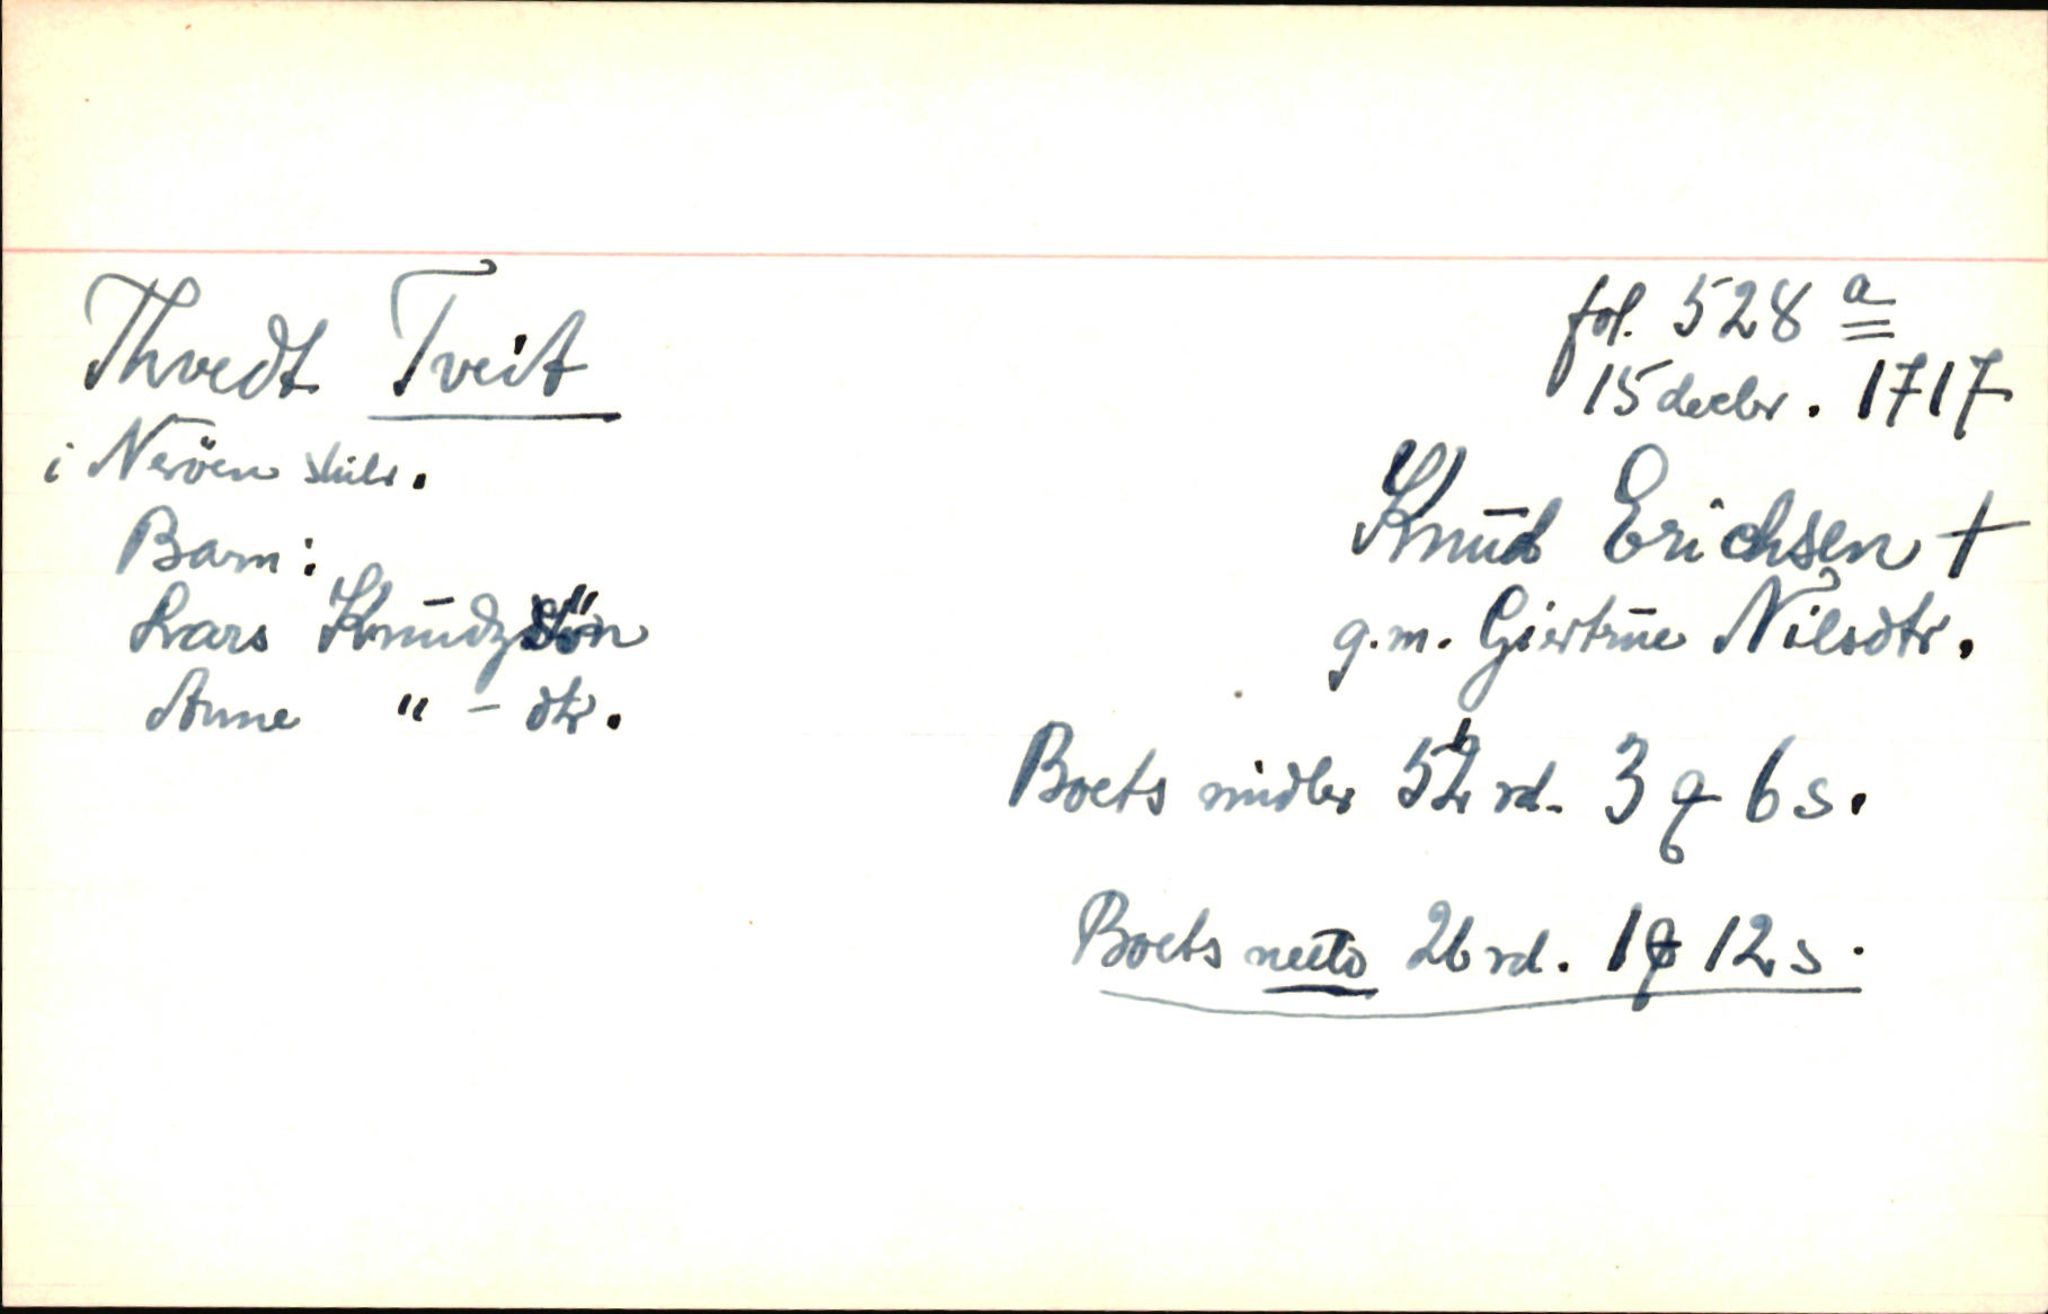 Thvedt Tveit
i Neröen skibr.
Barn:
Lars Knudzsön
Anne " - dtr.
fol. 528 a
15 decbr. 1717
Knud Erichsen †
g.m. Giertrue Nilsdtr.
Boets midler 52 rd. 3 q 6 s.
Boets netto 26 rd. 1 q 12 s.